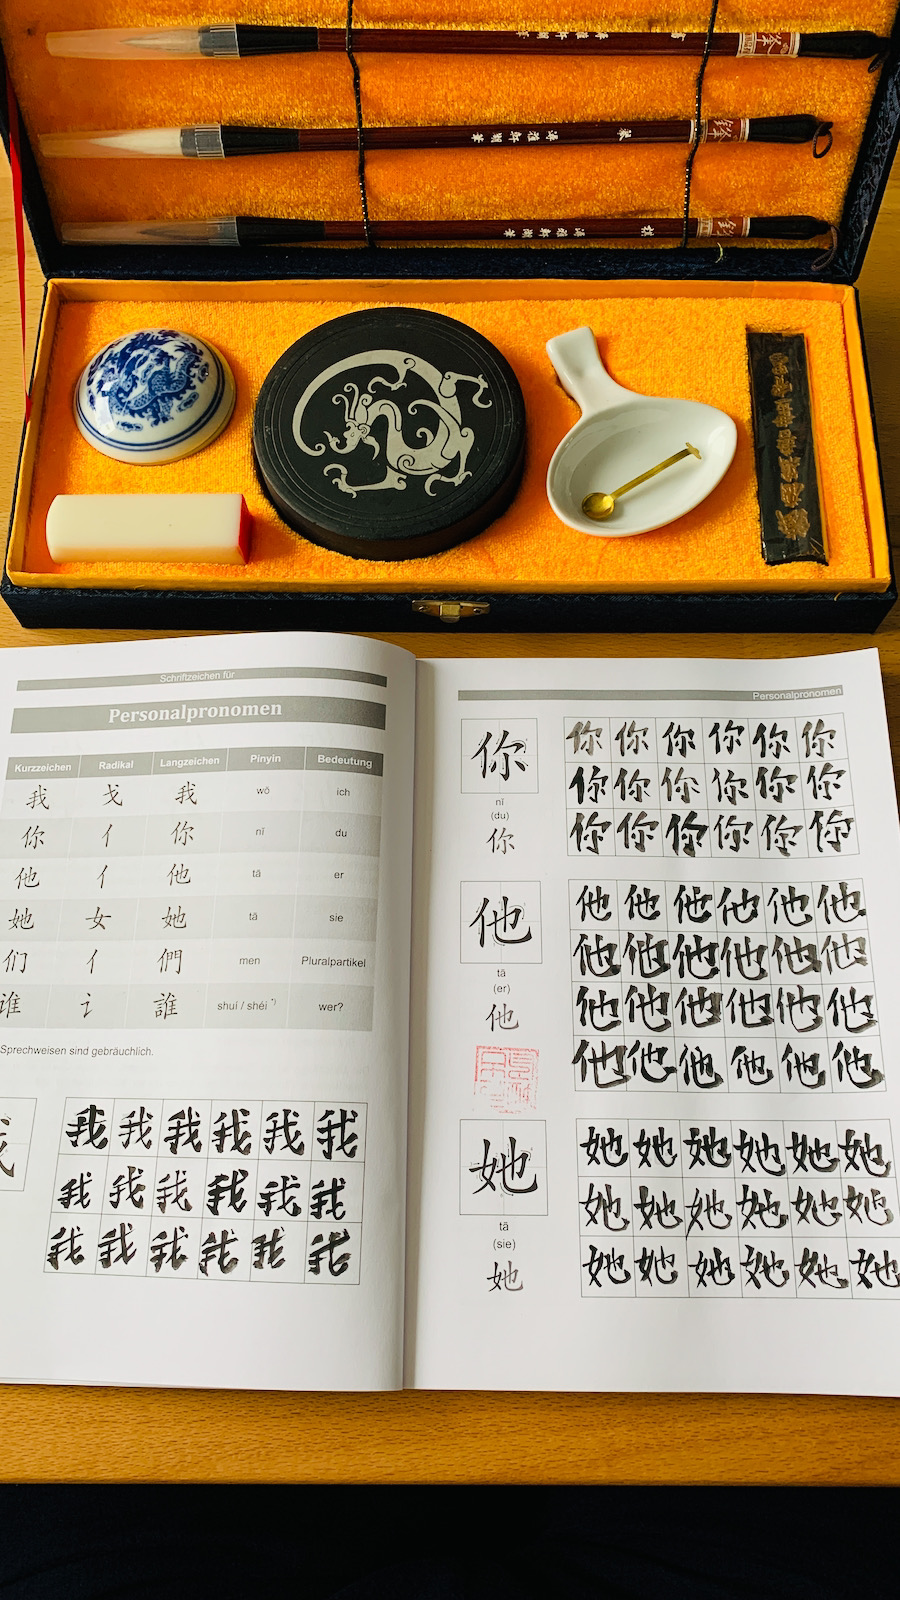 Schriftzeichen für
Personalpronomen
Kurzzeichen Radikal Langzeichen Pinyin Bedeutung
我 戈 我 wǒ ich
你 亻 你 nǐ du
他 亻 他 tā er
她 女 她 tā sie
们 亻 們 men Pluralpartikel
谁 讠 誰 shuí / shéi *) wer?
Sprechweisen sind gebräuchlich.
我
我 我 我 我 我 我
我 我 我 我 我 我
我 我 我 我 我 我
Personalpronomen
你
nǐ
(du)
你
你 你 你 你 你 你
你 你 你 你 你 你
你 你 你 你 你 你
他
tā
(er)
他
他 他 他 他 他 他
他 他 他 他 他 他
他 他 他 他 他 他
他 他 他 他 他 他
她
tā
(sie)
她
她 她 她 她 她 她
她 她 她 她 她 她
她 她 她 她 她 她